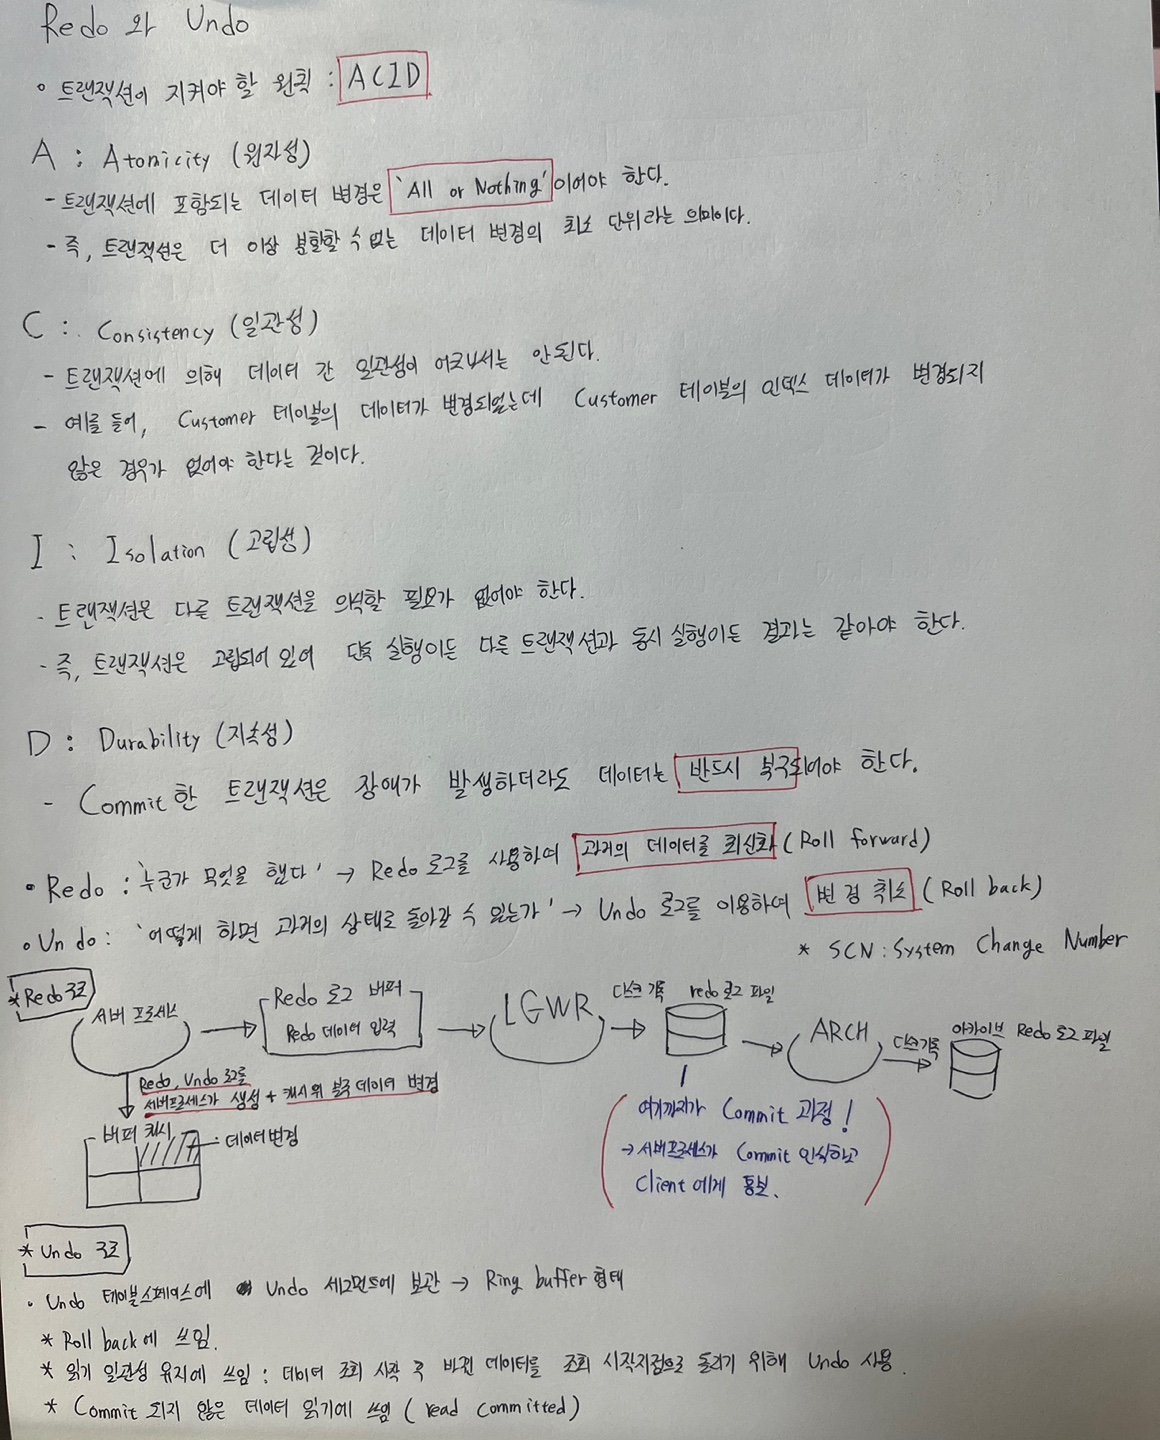 Redo 와 Undo
• 트랜잭션이 지켜야 할 원칙 : ACID
A : Atomicity (원자성)
- 트랜잭션에 포함되는 데이터 변경은 'All or Nothing' 이어야 한다.
- 즉, 트랜잭션은 더 이상 분할할 수 없는 데이터 변경의 최소 단위라는 의미이다.
C : Consistency (일관성)
- 트랜잭션에 의해 데이터 간 일관성이 어긋나서는 안된다.
- 예를 들어, Customer 테이블의 데이터가 변경되었는데 Customer 테이블의 인덱스 데이터가 변경되지
않은 경우가 없어야 한다는 것이다.
I : Isolation (고립성)
- 트랜잭션은 다른 트랜잭션을 의식할 필요가 없어야 한다.
- 즉, 트랜잭션은 고립되어 있어 단독 실행이든 다른 트랜잭션과 동시 실행이든 결과는 같아야 한다.
D : Durability (지속성)
- Commit 한 트랜잭션은 장애가 발생하더라도 데이터는 반드시 복구되어야 한다.
• Redo : '누군가 무엇을 했다' → Redo 로그를 사용하여 과거의 데이터를 최신화 (Roll forward)
• Undo : '어떻게 하면 과거의 상태로 돌아갈 수 있는가' → Undo 로그를 이용하여 변경 취소 (Roll back)
* SCN : System Change Number
* Redo 구조
서버 프로세스
Redo 로그 버퍼
Redo 데이터 입력
LGWR
디스크 기록
redo 로그 파일
ARCH
디스크 기록
아카이브 Redo 로그 파일
Redo, Undo 로그를
서버프로세스가 생성 + 캐시 위 블록 데이터 변경
버퍼 캐시
: 데이터 변경
여기까지가 Commit 과정!
→ 서버프로세스가 Commit 인식하고
Client 에게 통보.
* Undo 구조
• Undo 테이블스페이스에 Undo 세그먼트에 보관 → Ring buffer 형태
* Roll back에 쓰임.
* 읽기 일관성 유지에 쓰임 : 데이터 조회 시작 후 바뀐 데이터를 조회 시작지점으로 돌리기 위해 Undo 사용.
* Commit 되지 않은 데이터 읽기에 쓰임 (read committed)